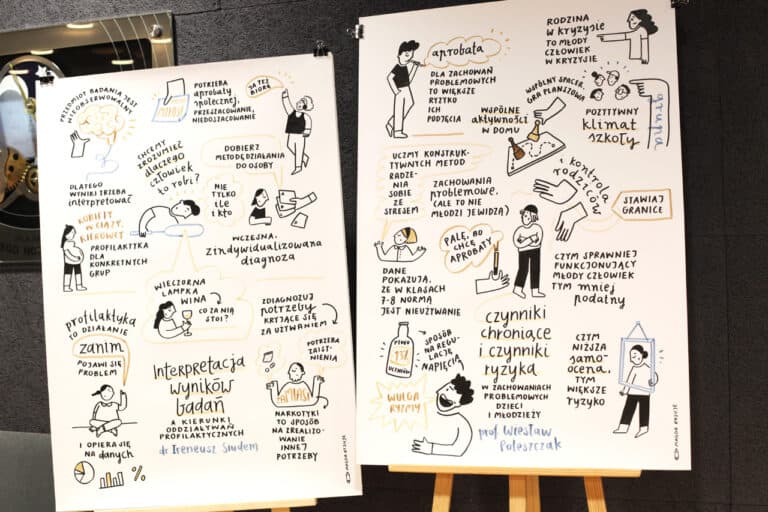 PRZEDMIOT BADANIA JEST
NIEOBSERWOWALNY
POTRZEBA
APROBATY
SPOŁECZNEJ,
PRZESZACOWANIE,
NIEDOSZACOWANIE
JA TEŻ
BIORĘ
CHCEMY
ZROZUMIEĆ
dlaczego
CZŁOWIEK
TO ROBI?
DOBIERZ
METODĘ DZIAŁANIA
DO OSOBY
DLATEGO
WYNIKI TRZEBA
interpretować
NIE
TYLKO
ILE
I KTO
KOBIETY
W CIĄŻY,
KIEROWCY
PROFILAKTYKA
DLA
KONKRETNYCH
GRUP
WCZESNA,
zindywidualizowana
diagnoza
WIECZORNA
LAMPKA
WINA
CO ZA NIĄ
STOI?
ZDIAGNOZUJ
potrzeby
KRYJĄCE SIĘ
ZA UŻYWANIEM
profilaktyka
TO DZIAŁANIE
zanim
POJAWI SIĘ
PROBLEM
POTRZEBA
ZAIST-
NIENIA
Interpretacja
wyników
badań
A KIERUNKI
ODDZIAŁYWAŃ
PROFILAKTYCZNYCH
dr Ireneusz Siudem
ZAMIAST
NARKOTYKI TO
SPOSÓB NA
ZREALIZO-
WANIE
INNEJ
POTRZEBY
I OPIERA SIĘ
NA danych
%
MAGDA RYSUJE
aprobata
DLA ZACHOWAŃ
PROBLEMOWYCH
TO WIĘKSZE
RYZYKO
ICH
PODJĘCIA
RODZINA
W KRYZYSIE
TO MŁODY
CZŁOWIEK
W KRYZYSIE
WSPÓLNY SPACER,
GRA PLANSZOWA
WSPÓLNE
AKTYWNOŚCI
W DOMU
grupa
POZYTYWNY
klimat
szkoły
UCZMY KONSTRUK-
TYWNYCH METOD
RADZE-
NIA
SOBIE
ZE
STRESEM
ZACHOWANIA
problemowe.
(ALE TO NIE
MŁODZI JE WIDZĄ)
i kontrola
rodziców
STAWIAJ
GRANICE
PALĘ, BO
CHCĘ
APROBATY
DANE
POKAZUJĄ,
ŻE W KLASACH
7-8 NORMĄ
JEST NIEUŻYWANIE
CZYM SPRAWNIEJ
FUNKCJONUJĄCY
MŁODY CZŁOWIEK
TYM mniej
podatny
PIWO
UCZNIÓW
SPOSÓB
NA REGU-
LACJĘ
NAPIĘCIA
czynniki
chroniące
i czynniki
ryzyka
W ZACHOWANIACH
PROBLEMOWYCH
DZIECI
I MŁODZIEŻY
prof. Wiesław
Poleszczak
CZYM
NIŻSZA
samo-
ocena,
TYM
WIĘKSZE
RYZYKO
WULGA
RYZMY
MAGDA RYSUJE